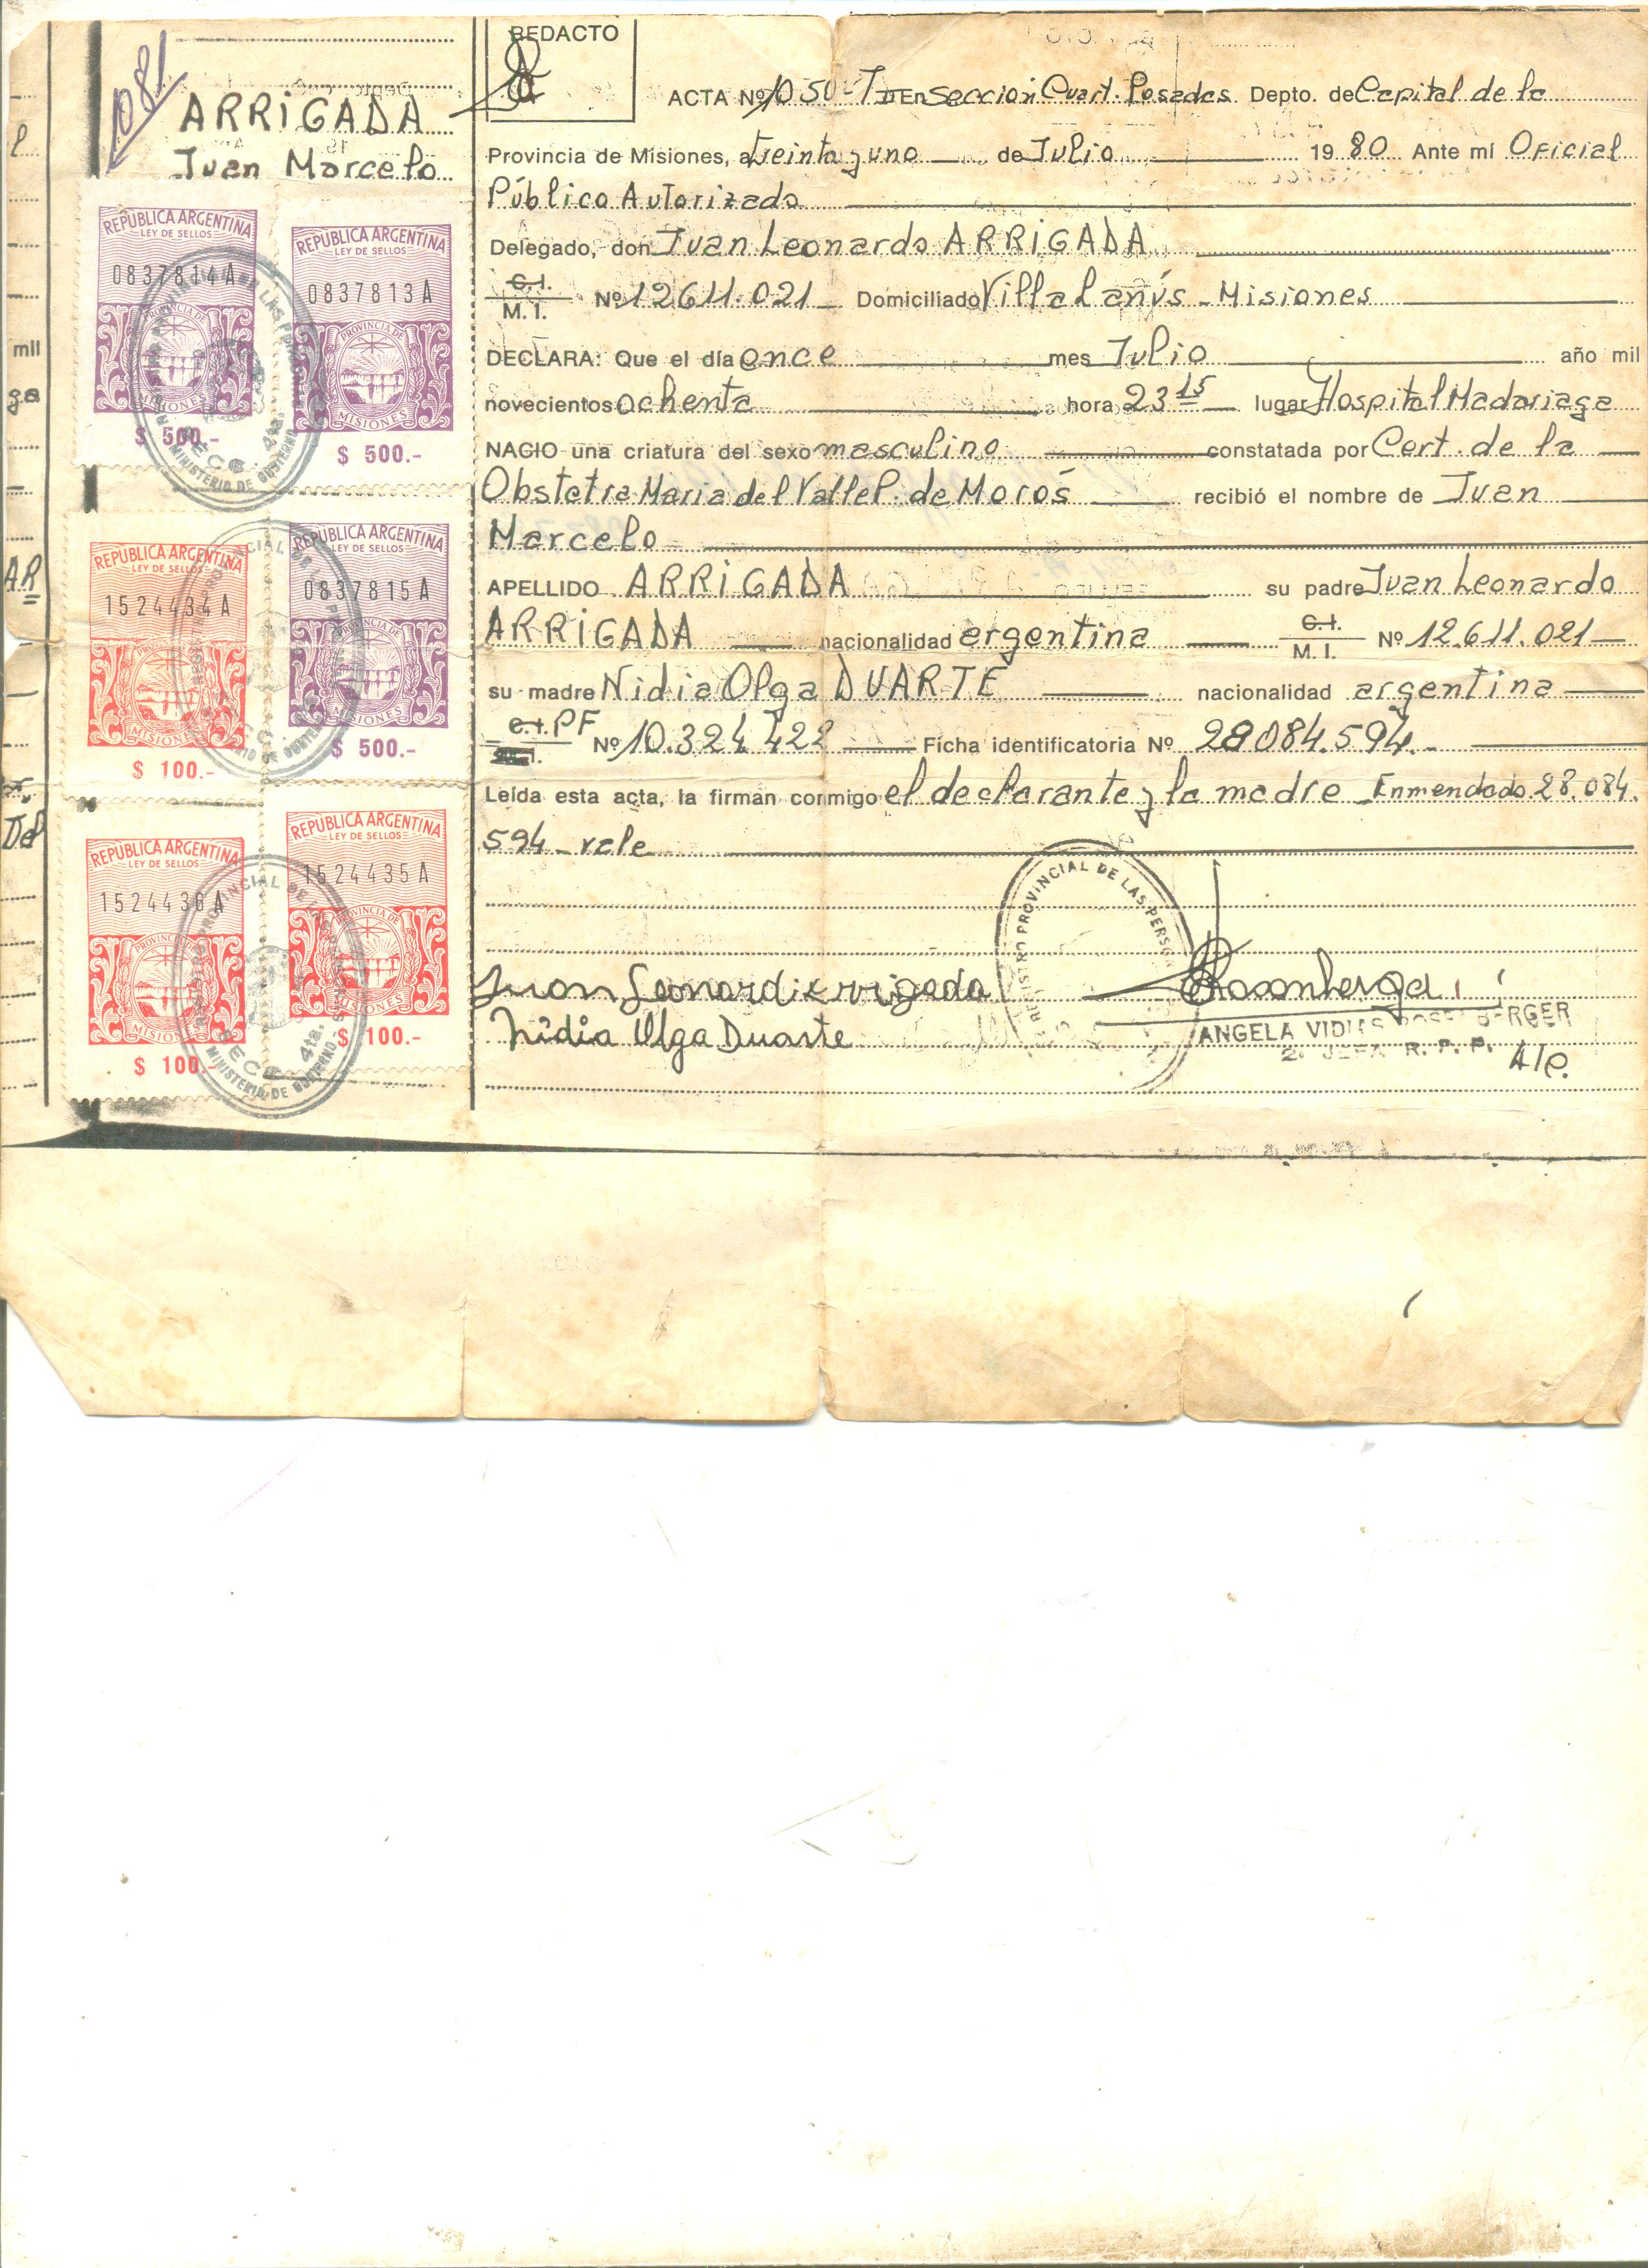 1081
ARRIGADA
Juan Marcelo
REDACTO
ACTA Nº 1050-T En Sección Cuart. Posadas Depto. de Capital de la
Provincia de Misiones, a treinta y uno de Julio 19 80 Ante mí Oficial
Público Autorizado
Delegado, don Juan Leonardo ARRIGADA
C.I.
M. I. Nº 12.611.021 Domiciliado Villa Lanús - Misiones
DECLARA: Que el día once mes Julio año mil
novecientos ochenta hora 23 15 lugar Hospital Madariaga
NACIO una criatura del sexo masculino constatada por Cert. de la
Obstetra Maria del Valle P. de Morós recibió el nombre de Juan
Marcelo
APELLIDO ARRIGADA su padre Juan Leonardo
ARRIGADA nacionalidad argentina C.I. M. I. Nº 12.611.021
su madre Nidia Olga DUARTE nacionalidad argentina
C.I. PF Nº 10.324.422 Ficha identificatoria Nº 28.084.594.-
Leída esta acta, la firman conmigo el declarante y la madre - Enmendado 28.084.
594 - vale
Juan Leonardo Arrigada
Nidia Olga Duarte
ANGELA VIDIAS ROSENBERGER
2º JEFA R. P. P.
REGISTRO PROVINCIAL DE LAS PERSONAS
REPUBLICA ARGENTINA
LEY DE SELLOS
0837814 A
PROVINCIA DE
MISIONES
$ 500.-
REPUBLICA ARGENTINA
LEY DE SELLOS
0837813 A
PROVINCIA DE
MISIONES
$ 500.-
REPUBLICA ARGENTINA
LEY DE SELLOS
1524434 A
MISIONES
$ 100.-
REPUBLICA ARGENTINA
LEY DE SELLOS
0837815 A
PROVINCIA DE
MISIONES
$ 500.-
REPUBLICA ARGENTINA
LEY DE SELLOS
1524436 A
PROVINCIA DE
MISIONES
$ 100.-
REPUBLICA ARGENTINA
LEY DE SELLOS
1524435 A
PROVINCIA DE
MISIONES
$ 100.-
SECC. 4ta.
MINISTERIO DE GOBIERNO
mil
ga
AR